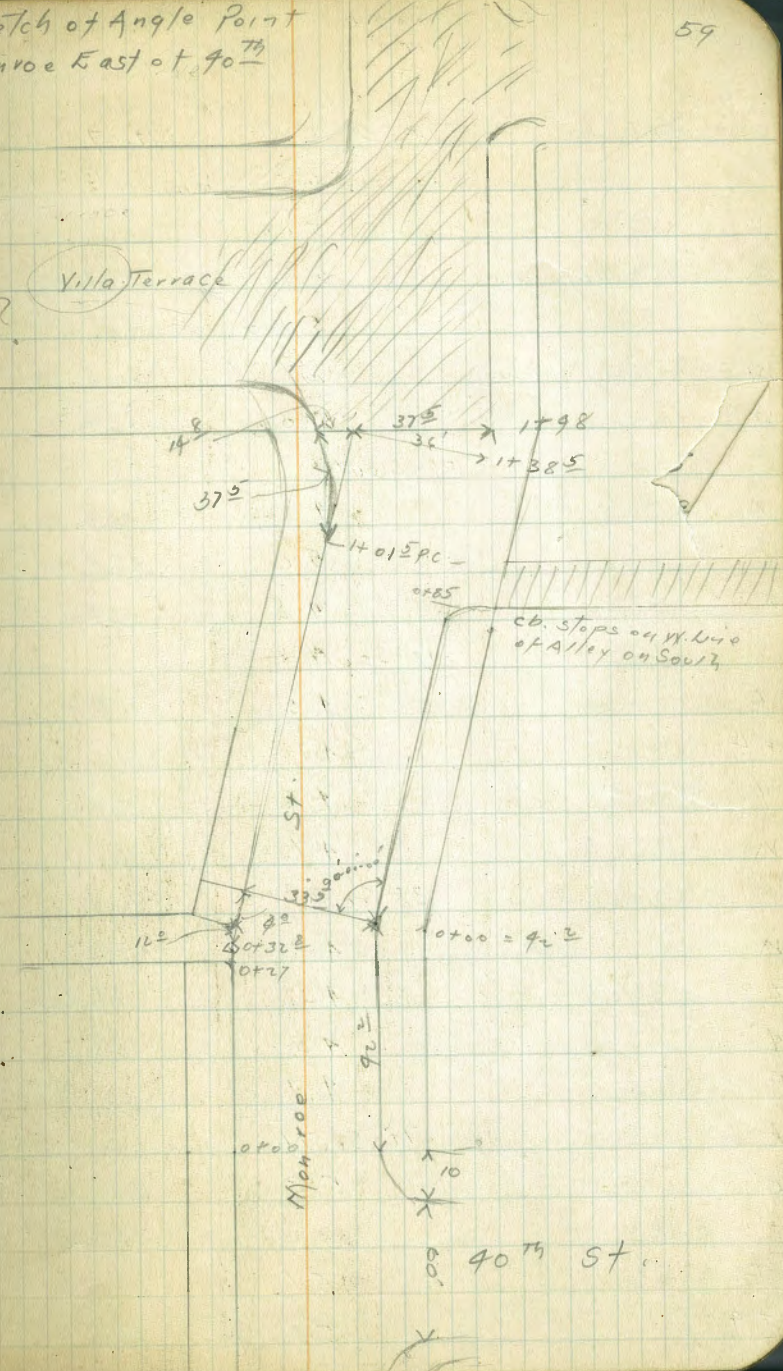 tch of Angle Point
nroe East of 40th
59
Villa Terrace
14 8
37 5
36'
1+98
1+38 5
37 5
1+01 5 P.C.
0+85
cb. stops on W. Line
of Alley on South
St.
33 5
4 0
12 0
0+32 2
0+27
0+00 = 42 2
42 2
0+00
Monroe
10
60
40th St.